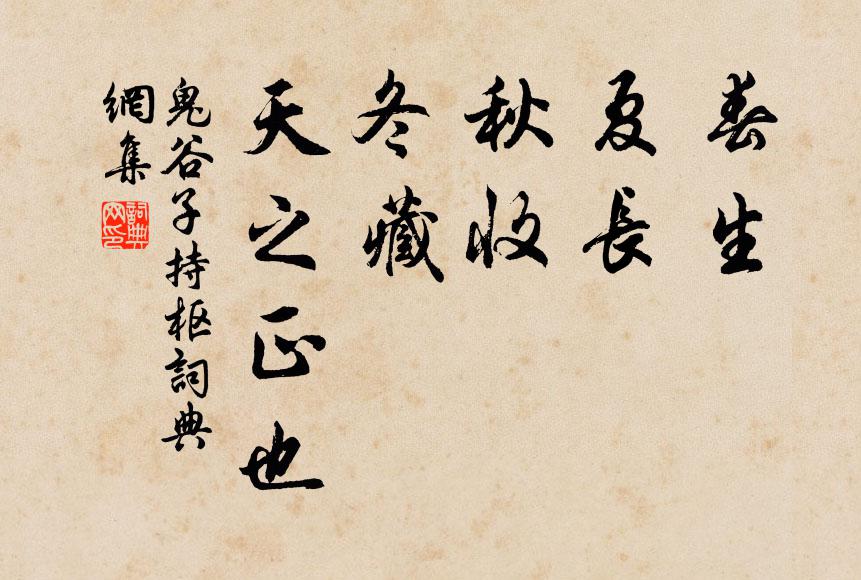 春生
夏長
秋收
冬藏
天之正也
鬼谷子持枢詞典
網集
詞典
网印